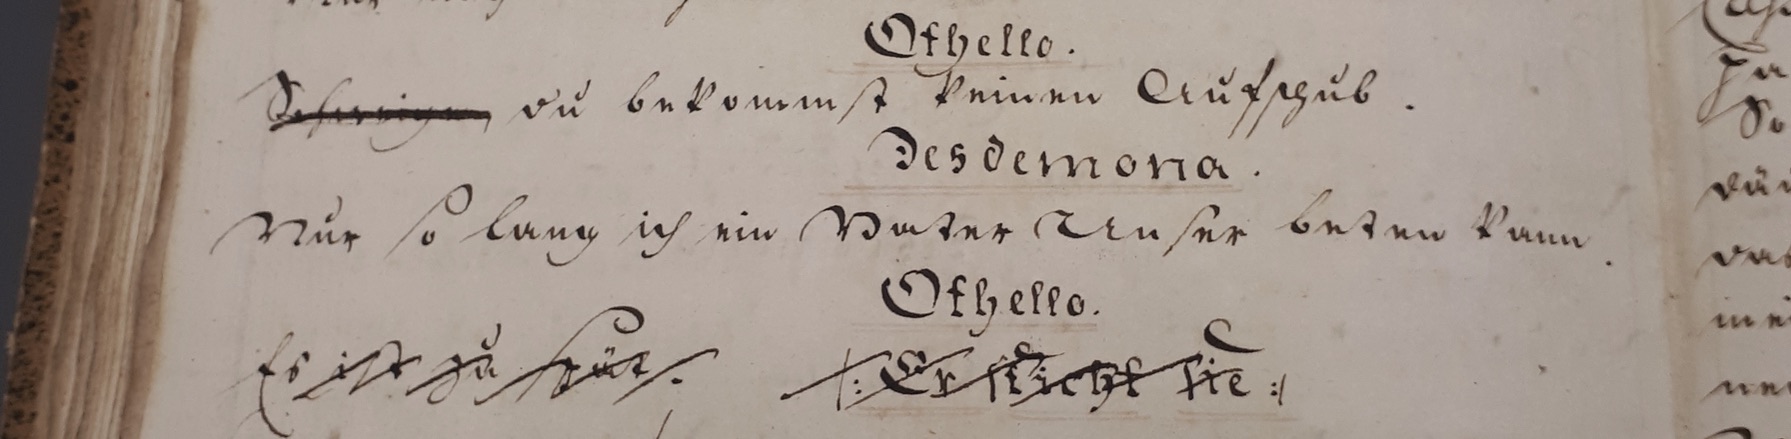 Othello.
Schweigen du bekommst keinen Aufschub.
Desdemona.
Nur so lang ich ein Vater Unser beten kann.
Othello.
Es ist zu spät. /: Er sticht sie :/